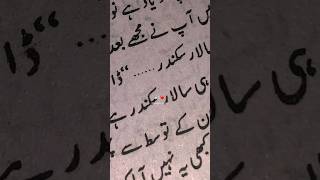 آپ نے مجھے بعد
سالار سکندر ...... “ڈا
ہی سالار سکندر ہے
ن کے توسط سے
کبھی یہ نہیں